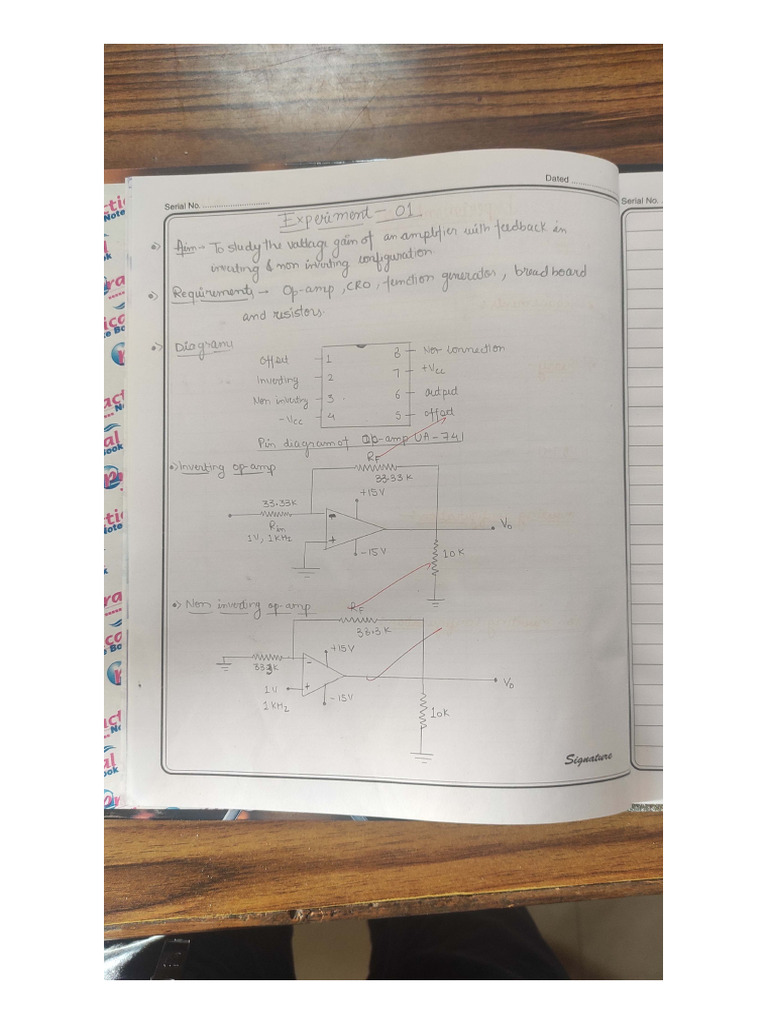 Dated
Serial No.
Serial No.
Experiment - 01
Aim - To study the valtage gain of an amplifier with feedback in
inverting & non inverting configuration.
Requirements - Op-amp, CRO, function generator, bread board
and resistors.
Diagram
Offset 1 8 Non connection
Inverting 2 7 +Vcc
Non inverting 3 6 output
-Vcc 4 5 offset
Pin diagram of Op-amp UA-741
Inverting op-amp
RF
33.33K
+15V
33.33K
Rin
1V, 1kHz
- +
-15V
10K
Vo
Non inverting op-amp
RF
33.3K
+15V
33.3K
- +
1V
1kHz
-15V
Vo
10K
Signature